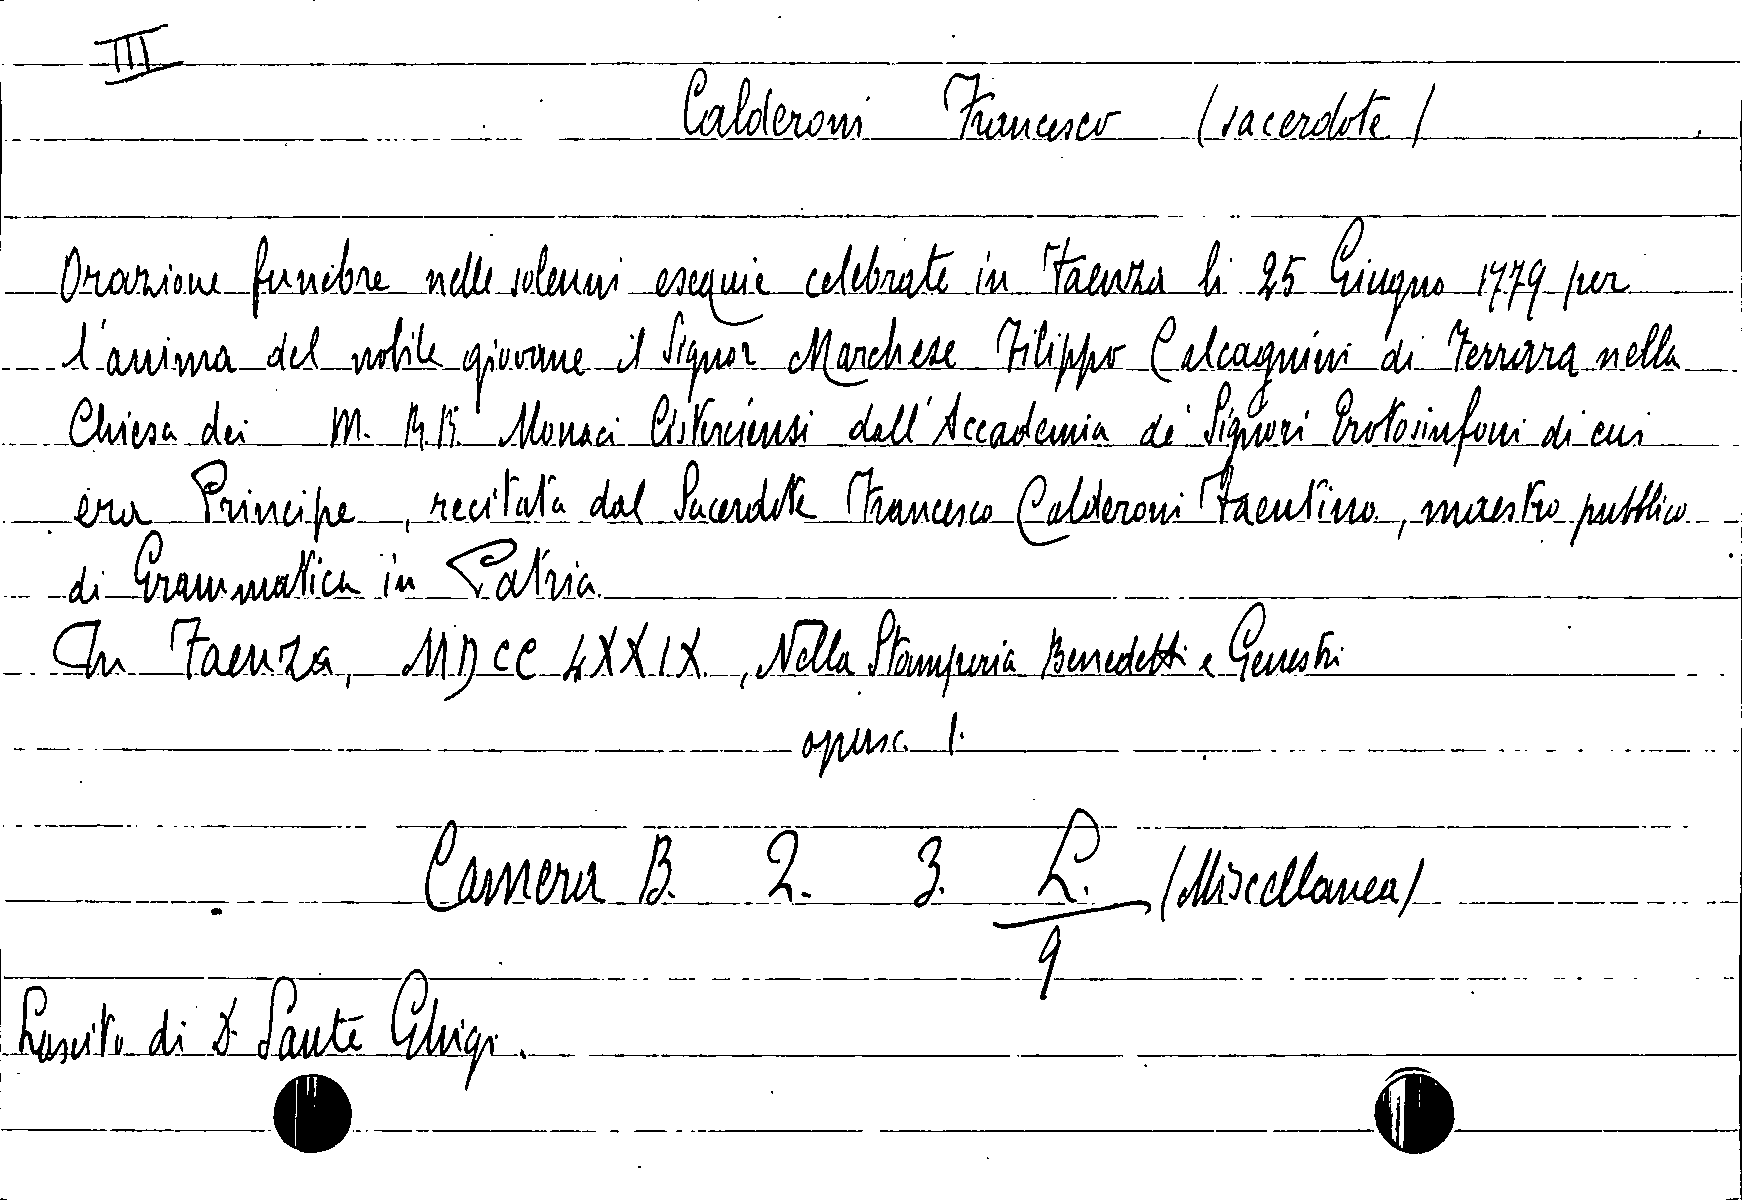 III
Calderoni Francesco (sacerdote)
Orazione funebre nelle solenni esequie celebrate in Faenza li 25 Giugno 1779 per
l'anima del nobile giovane il Signor Marchese Filippo Calcagnini di Ferrara nella
Chiesa dei M. R.R. Monaci Cisterciensi dall'Accademia de' Signori Protosinfoni di cui
era Principe, recitata dal Sacerdote Francesco Calderoni Faentino, maestro pubblico
di Grammatica in Patria
In Faenza, MDCCLXXIX, Nella Stamperia Benedetti e Genestri
opusc. 1.
Camera B. 2. 3. L. (Miscellanea)
9
Lascito di D. Sante Ghigi.